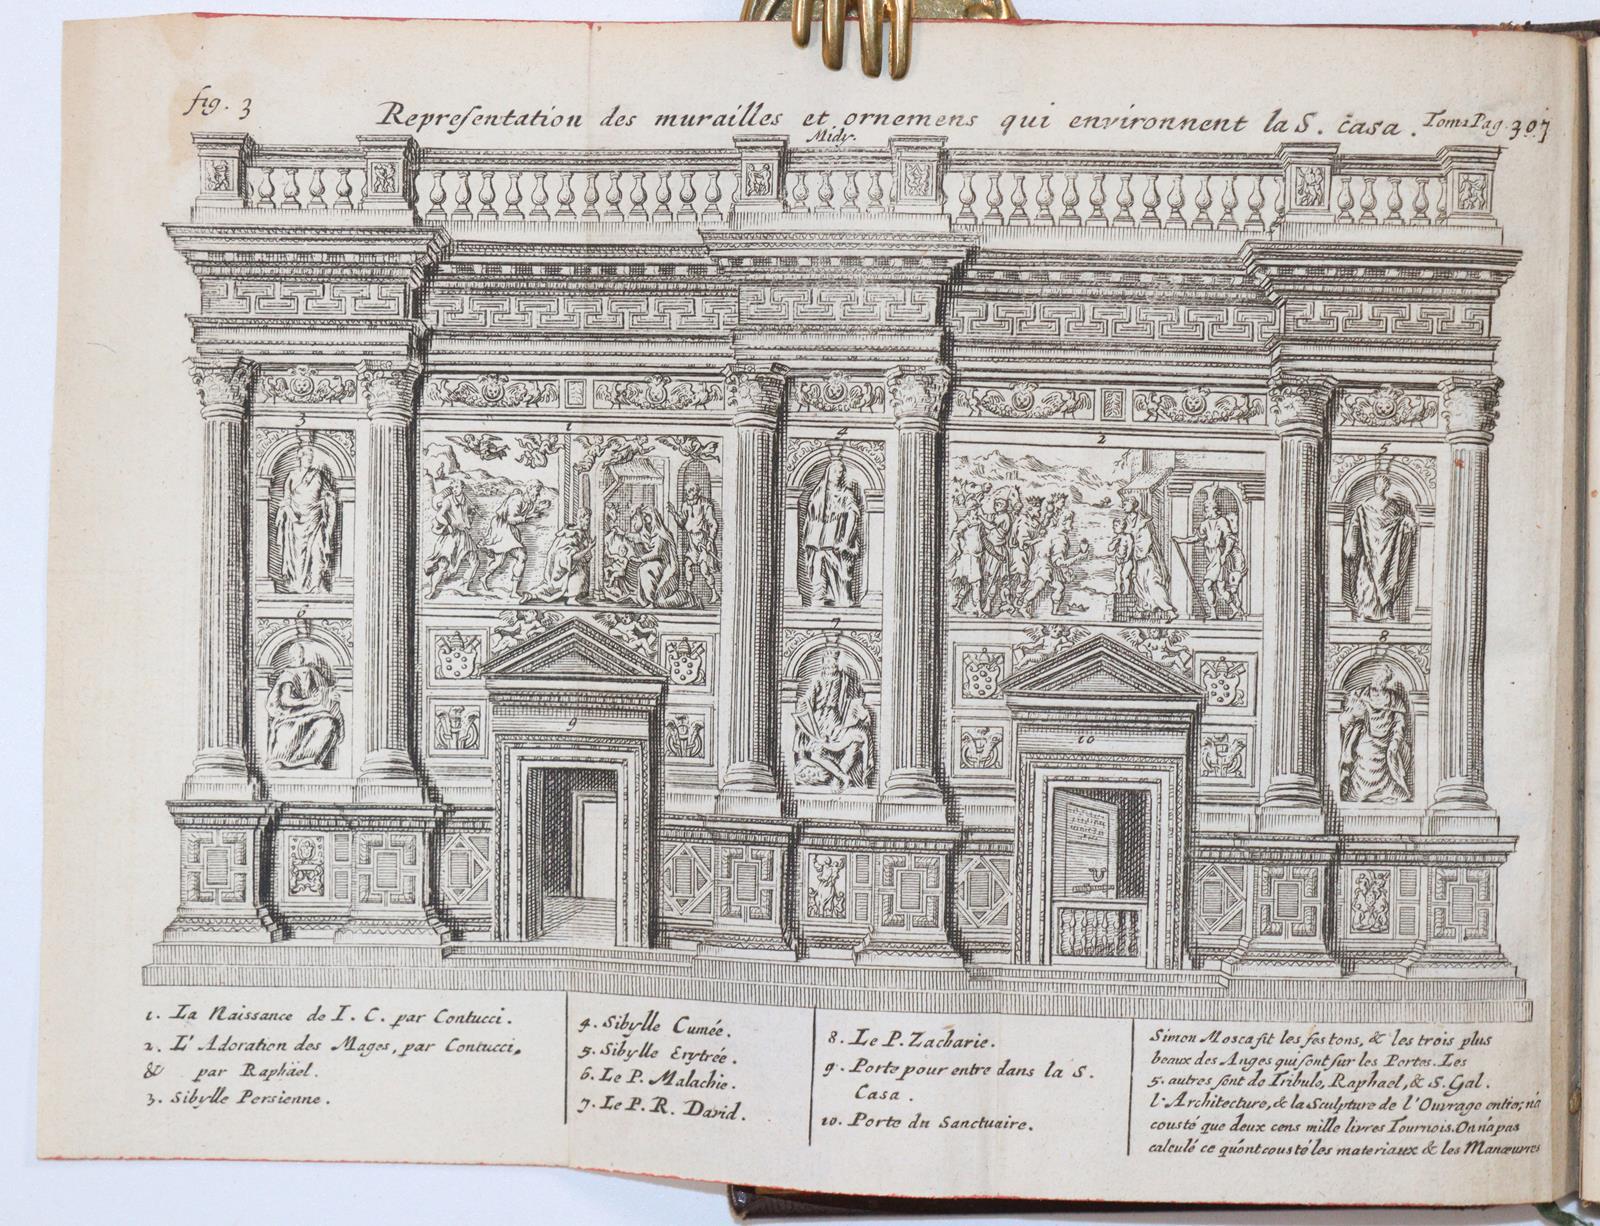 fig. 3
Representation des murailles et ornemens qui environnent la S. casa. Tom 1 Pag. 307
Midy.
1
2
3
4
5
6
7
8
9
10
1. La Naissance de I. C. par Contucci.
2. L'Adoration des Mages, par Contucci,
& par Raphäel.
3. Sibylle Persienne.
4. Sibylle Cumée.
5. Sibylle Erytrée.
6. Le P. Malachie.
7. Le P. R. David.
8. Le P. Zacharie.
9. Porte pour entre dans la S.
Casa.
10. Porte du Sanctuaire.
Simon Mosca fit les festons, & les trois plus
beaux des Anges qui sont sur les Portes. Les
5. autres sont de Tribulo, Raphael, & S. Gal.
l'Architecture, & la Sculpture de l'Ouvrage entier, n'a
cousté que deux cens mille livres Tournois. On n'a pas
calculé ce qu'ont cousté les materiaux & les Manœuvres